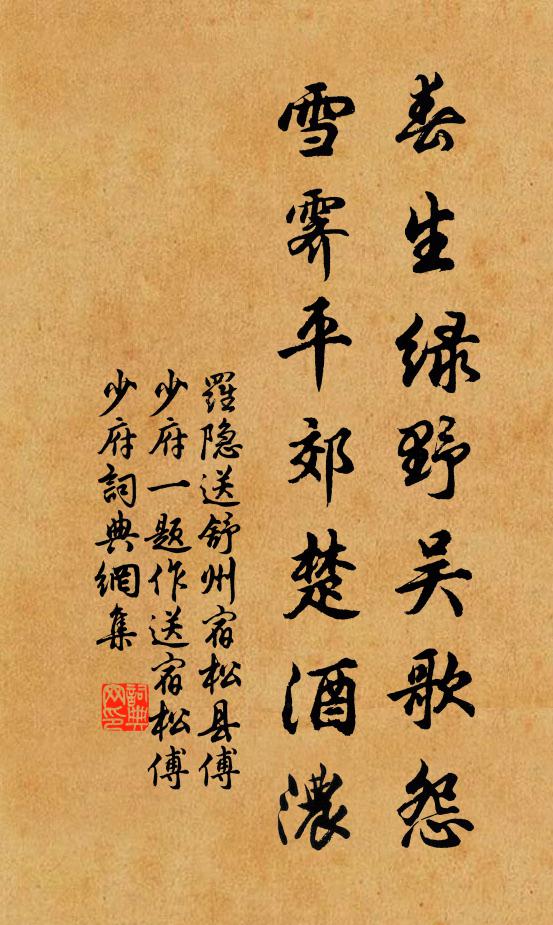 春生绿野吴歌怨
雪霁平郊楚酒浓
羅隐送舒州宿松县傅
少府一题作送宿松傅
少府詞典網集
詞典网印